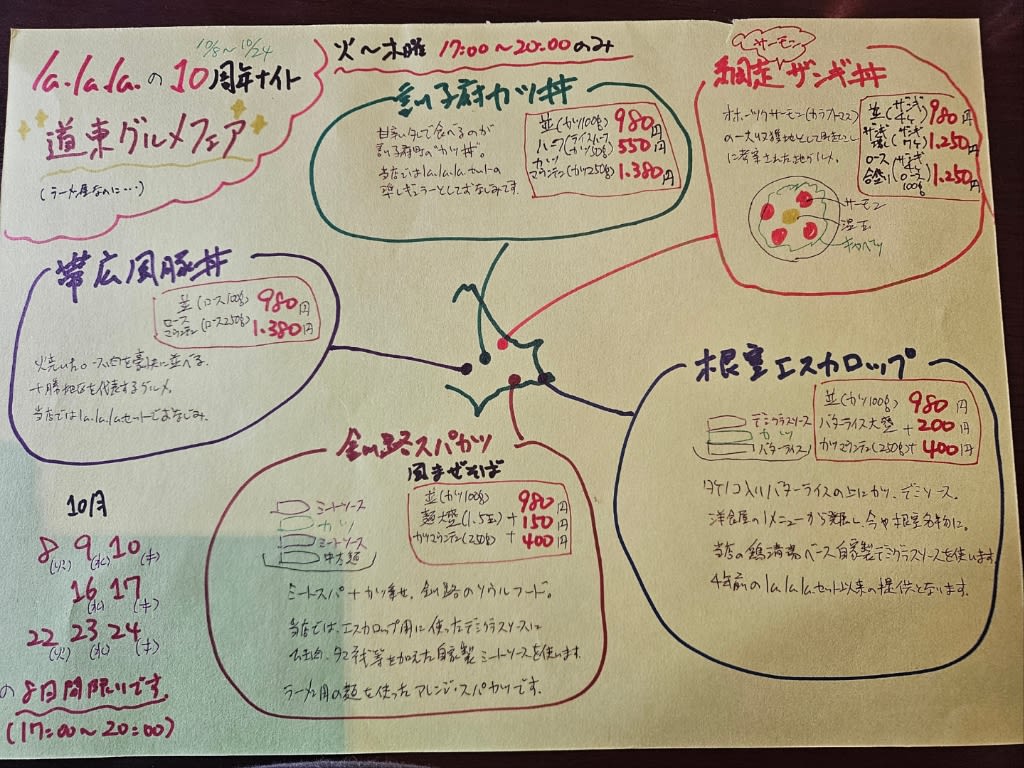 10/8〜10/24
la.la.la.の10周年ナイト
道東グルメフェア
(ラーメン屋なのに…)
火〜木曜 17:00〜20:00のみ
訓子府カツ丼
甘辛いタレで食べるのが
訓子府町の“カツ丼”。
当店ではla.la.la.セットの
準レギュラーとしておなじみです。
並(カツ100g) 980円
ハーフ(ライスハーフ カツ50g) 550円
カツマウンテン(カツ250g) 1.380円
サーモン
網走ザンギ丼
オホーツクサーモン(カラフトマス)
の一大収獲地として町をっこし
に考案された地グルメ。
並(ザンギ4ケ) 980円
ザンギ増し(ザンギ7ケ) 1.250円
ロース合盛り(ザンギ ロース100g) 1.250円
サーモン
温玉
キャベツ
帯広風豚丼
並(ロース100g) 980円
ロースマウンテン(ロース250g) 1.380円
火焼いたロース肉を豪快に並べる、
十勝地区を代表するグルメ。
当店ではla.la.la.セットでおなじみ。
根室エスカロップ
並(カツ100g) 980円
バターライス大盛 +200円
カツマウンテン(250g)+400円
デミグラスソース
カツ
バターライス
タケノコ入りバターライスの上にカツ、デミソース。
洋食屋の1メニューから発展し、今や根室名物に。
当店の鶏清湯ベース自家製デミグラスソースを使います。
4年前のla.la.la.セット以来の提供となります。
釧路スパカツ
風まぜそば
並(カツ100g) 980円
麺大盛(1.5玉) +150円
カツマウンテン(250g) +400円
ミートソース
カツ
ミートソース
中太麺
ミートスパ+カツ乗せ。釧路のソウルフード。
当店では、エスカロップ用に使ったデミグラスソースに
ひき肉、タマネギ等を加えた自家製ミートソースを使います。
ラーメン用の麺を使ったアレンジ・スパカツです。
10月
8(火) 9(水) 10(木)
16(水) 17(木)
22(火) 23(水) 24(木)
の8日間限りです。
(17:00〜20:00)